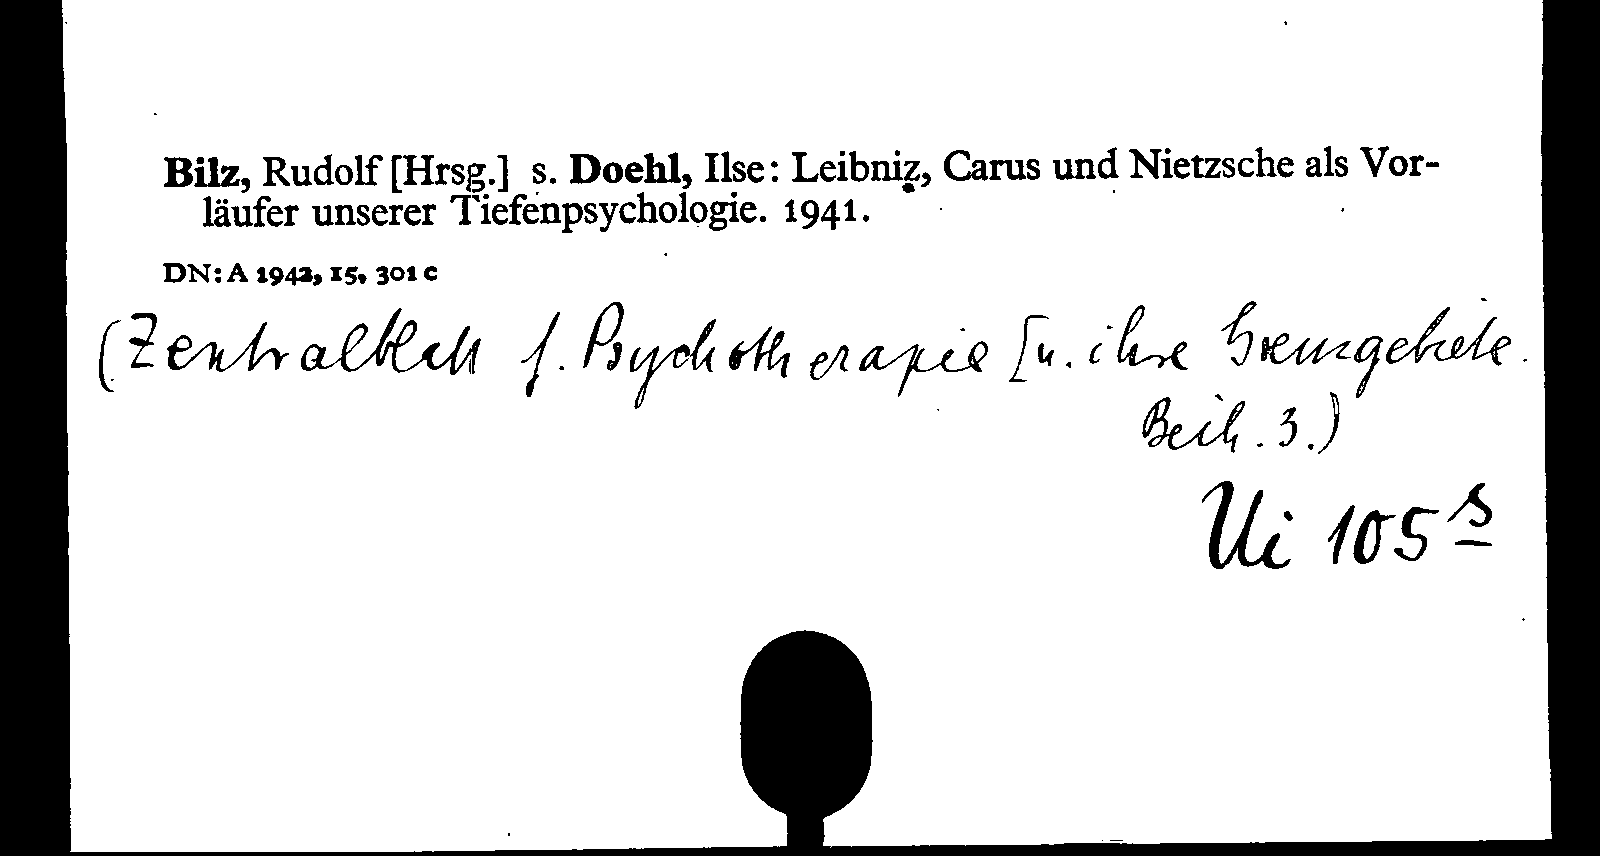 Bilz, Rudolf [Hrsg.] s. Doehl, Ilse: Leibniz, Carus und Nietzsche als Vor-
läufer unserer Tiefenpsychologie. 1941.
DN: A 1942, 15, 301 c
(Zentralblatt f. Psychotherapie [u. ihre Grenzgebiete.
Beih. 3.)
Ui 105 s